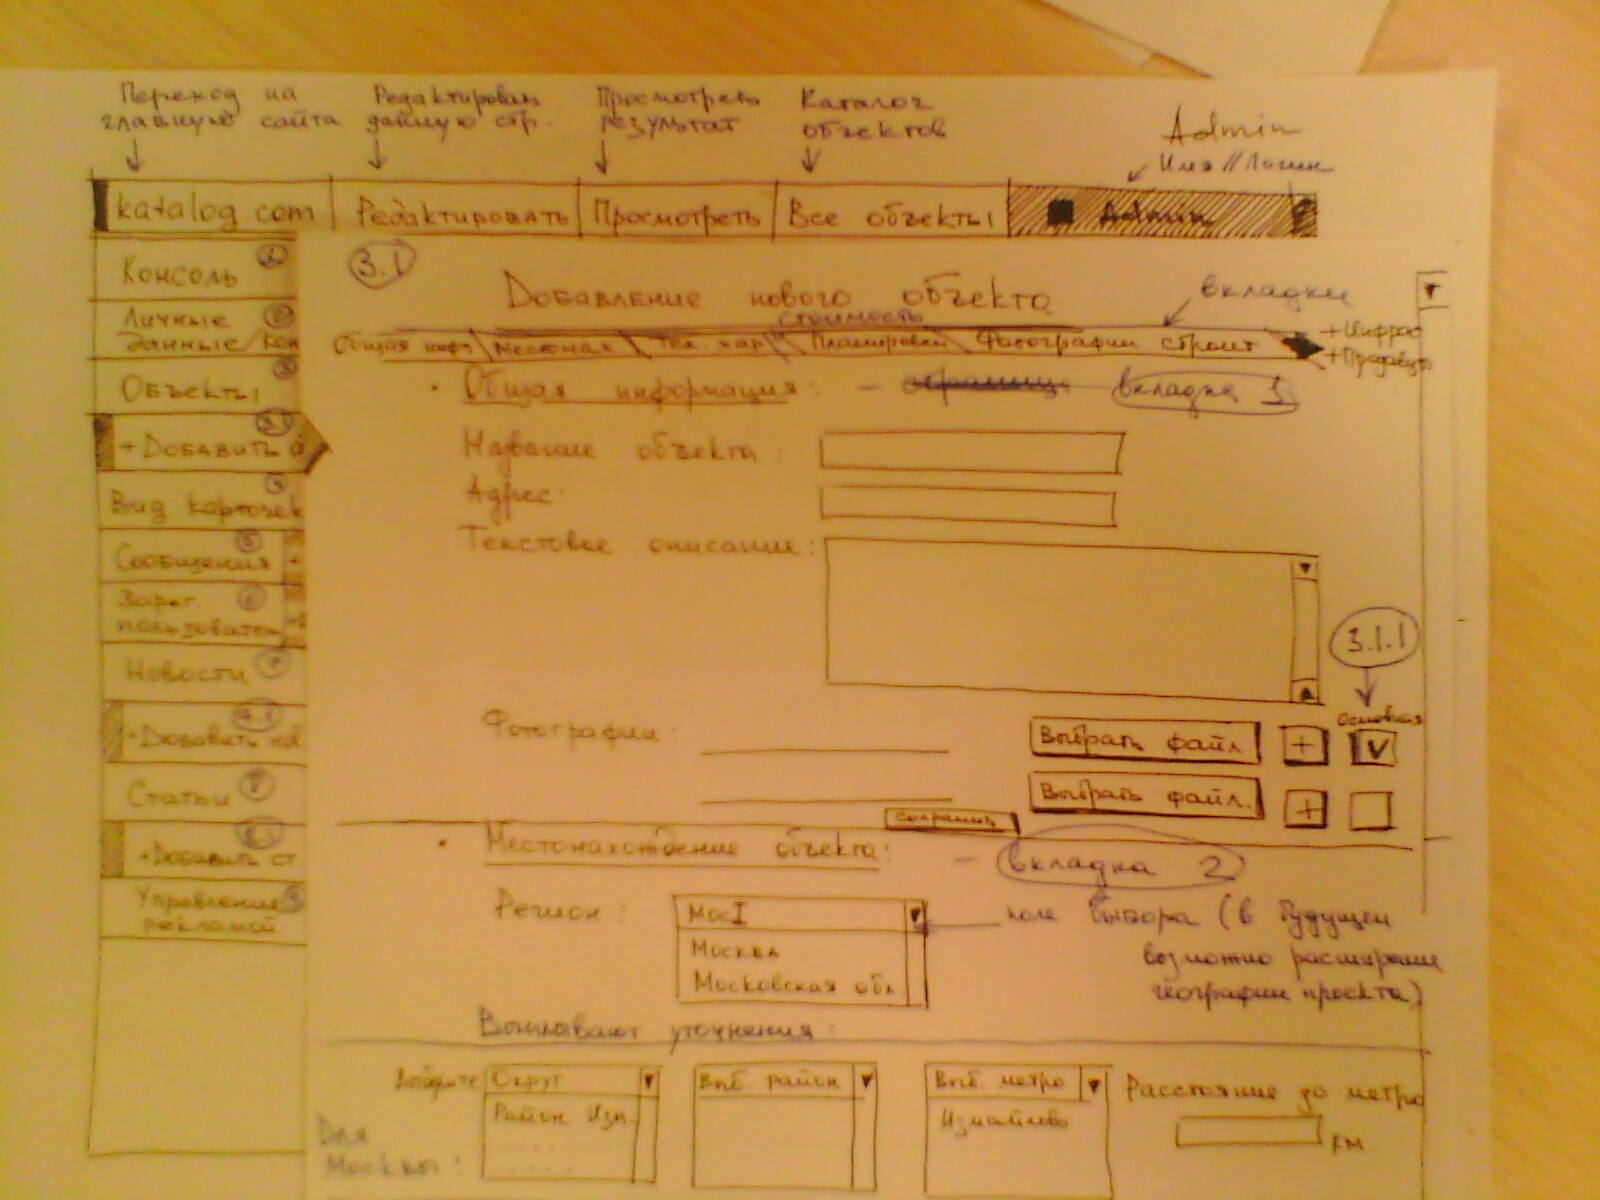 Переход на
главную сайта
Редактировать
данную стр.
Просмотреть
результат
Каталог
объектов
Admin
Имя // Логин
katalog.com
Редактировать
Просмотреть
Все объекты
Admin
Консоль
Личные
данные/кон
Объекты 3
+ Добавить о 3.1
Вид карточек 4
Сообщения 5 +
Зарег. 6
пользовател
Новости 7
+ Добавить нов 7.1
Статьи 8
+ Добавить ст 8.1
Управление 9
рекламой
3.1
Добавление нового объекта
вкладки
стоимость
Общая инф \ Местонах \ Тех. хар \ Планировки \ Фотографии строит
+ Цифров
+ Продавца
• Общая информация: – вкладка 1
Название объекта:
Адрес:
Текстовое описание:
3.1.1
основная
Фотографии:
Выбрать файл + V
Выбрать файл. +
сохранить
• Местонахождение объекта: – вкладка 2
Регион:
Мос
Москва
Московская обл
поле выбора (в будущем
возможно расширение
географии проекта)
Всплывают уточнения:
Выберите
Округ
Район Изм.
Выб. район
Выб. метро
Измайлово
Расстояние до метро
км.
Для
Москвы: